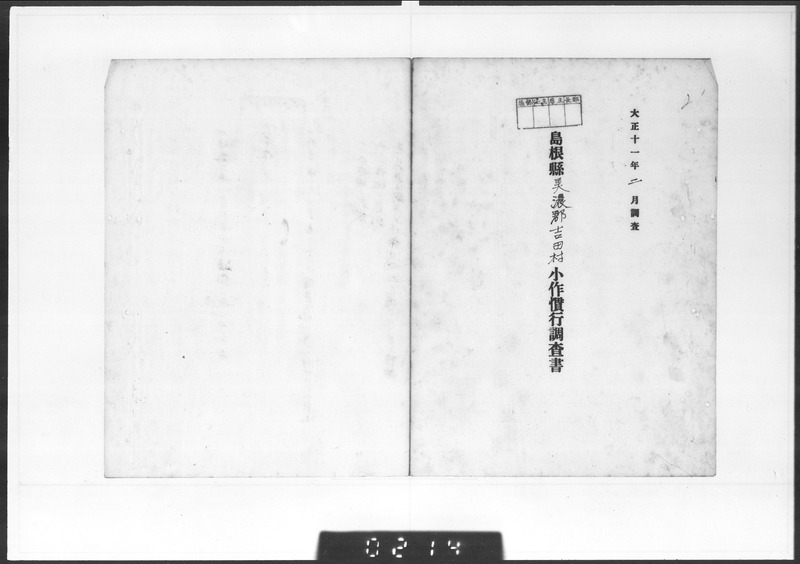 大正十一年二月調査
島根縣美濃郡吉田村小作慣行調査書
0214